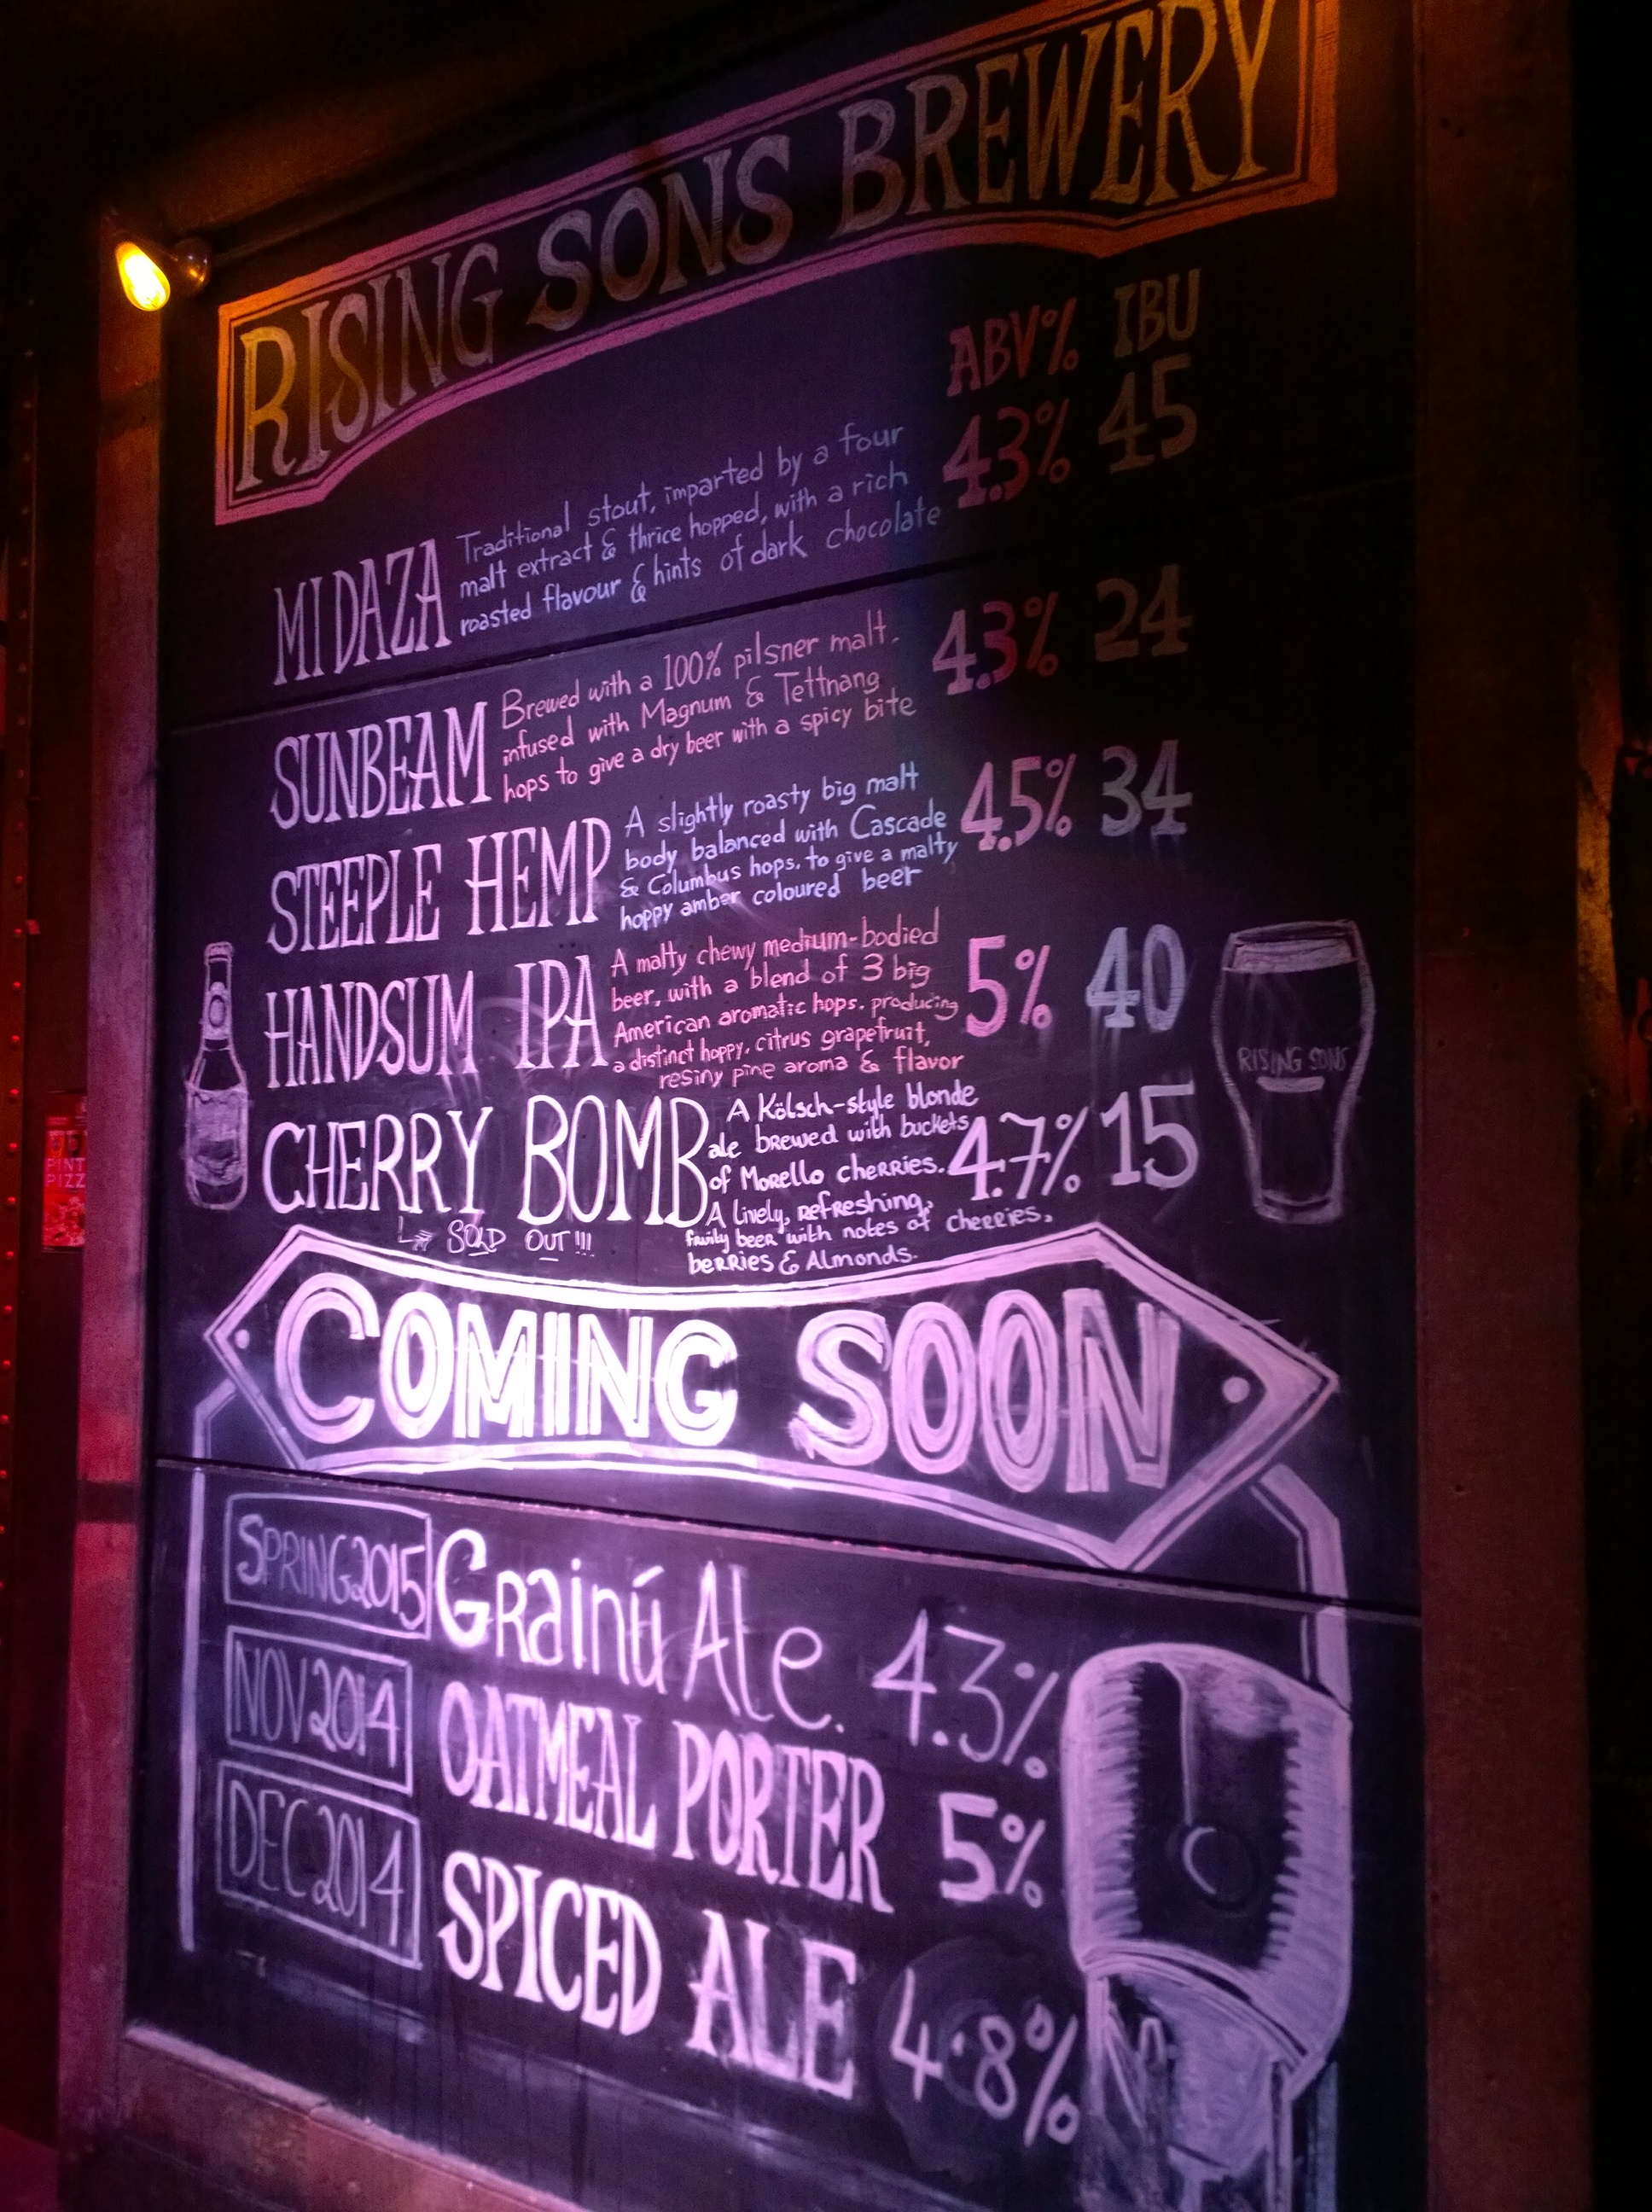 RISING SONS BREWERY
ABV% IBU
MIDAZA
Traditional stout, imparted by a four
malt extract & thrice hopped, with a rich
roasted flavour & hints of dark chocolate
4.3% 45
SUNBEAM
Brewed with a 100% pilsner malt.
infused with Magnum & Tettnang
hops to give a dry beer with a spicy bite
4.3% 24
STEEPLE HEMP
A slightly roasty big malt
body balanced with Cascade
& Columbus hops, to give a malty
hoppy amber coloured beer
4.5% 34
HANDSUM IPA
A malty chewy medium-bodied
beer, with a blend of 3 big
American aromatic hops, producing
a distinct hoppy, citrus grapefruit,
resiny pine aroma & flavor
5% 40
CHERRY BOMB
A Kölsch-style blonde
ale brewed with buckets
of Morello cherries.
A lively, refreshing,
fruity beer with notes of cherries,
berries & Almonds.
4.7% 15
SOLD OUT!!!
RISING SONS
COMING SOON
SPRING 2015 Grainú Ale. 4.3%
NOV 2014 OATMEAL PORTER 5%
DEC 2014 SPICED ALE 4.8%
PINT
PIZZ